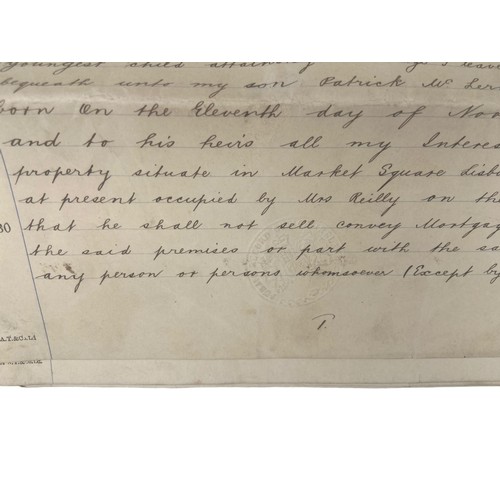 youngest child attaining I leave
bequeath unto my son Patrick Mc Ler
born On the Eleventh day of Nov
and to his heirs all my Interes
property situate in Market Square Lisb
at present occupied by Mrs Reilly on the
30
that he shall not sell convey Mortgag
the said premises or part with the sa
any person or persons whomsoever (Except by
T.
A.T.&C.Ld